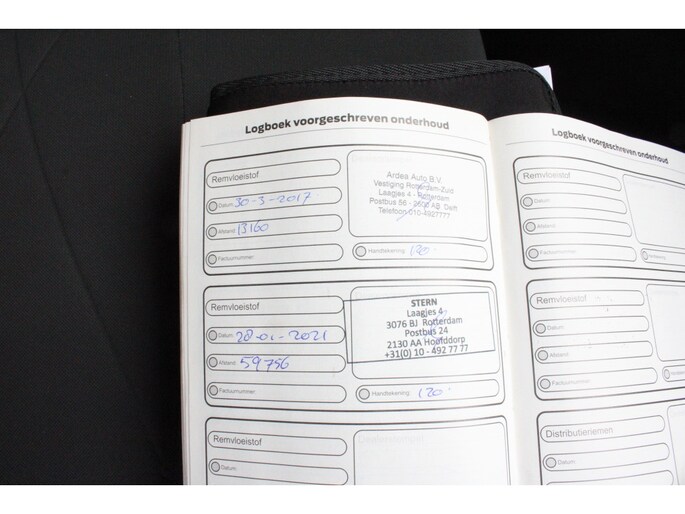 Logboek voorgeschreven onderhoud
Remvloeistof
Datum: 30-3-2017
Afstand: 13160
Factuurnummer:
Ardea Auto B.V.
Vestiging Rotterdam-Zuid
Laagjes 4 - Rotterdam
Postbus 56 - 2600 AB Delft
Telefoon 010-4927777
Handtekening: 120
Remvloeistof
Datum: 28-01-2021
Afstand: 59756
Factuurnummer:
STERN
Laagjes 4
3076 BJ Rotterdam
Postbus 24
2130 AA Hoofddorp
+31(0) 10 - 492 77 77
Handtekening: 120
Remvloeistof
Datum:
Logboek voorgeschreven onderhoud
Remvloeistof
Datum:
Afstand:
Factuurnummer:
Remvloeistof
Datum:
Afstand:
Factuurnummer:
Distributieriemen
Datum: